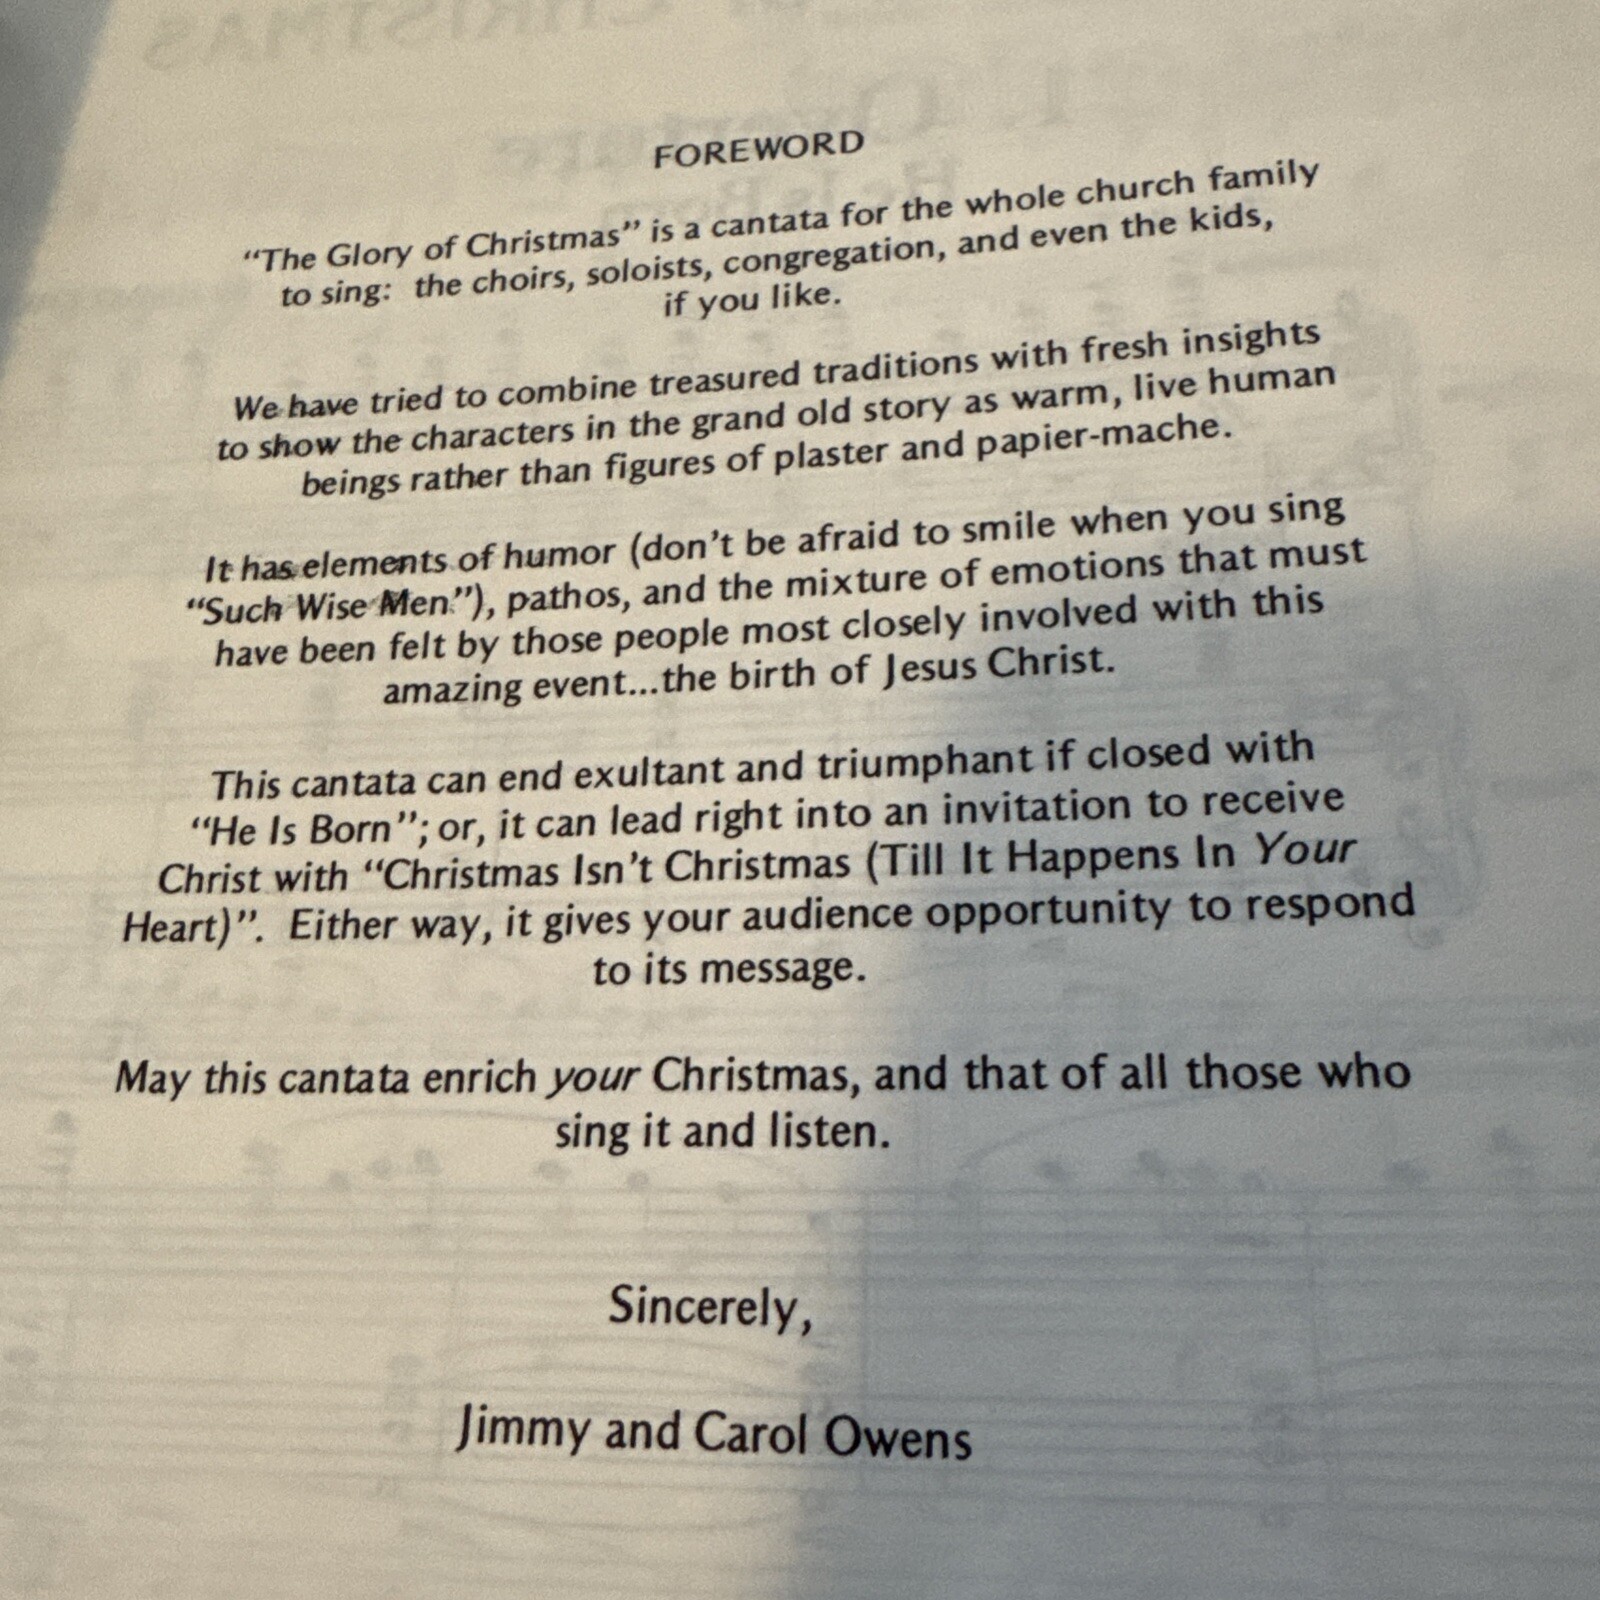 FOREWORD
“The Glory of Christmas” is a cantata for the whole church family
to sing: the choirs, soloists, congregation, and even the kids,
if you like.
We have tried to combine treasured traditions with fresh insights
to show the characters in the grand old story as warm, live human
beings rather than figures of plaster and papier-mache.
It has elements of humor (don’t be afraid to smile when you sing
“Such Wise Men”), pathos, and the mixture of emotions that must
have been felt by those people most closely involved with this
amazing event...the birth of Jesus Christ.
This cantata can end exultant and triumphant if closed with
“He Is Born”; or, it can lead right into an invitation to receive
Christ with “Christmas Isn’t Christmas (Till It Happens In Your
Heart)”. Either way, it gives your audience opportunity to respond
to its message.
May this cantata enrich your Christmas, and that of all those who
sing it and listen.
Sincerely,
Jimmy and Carol Owens